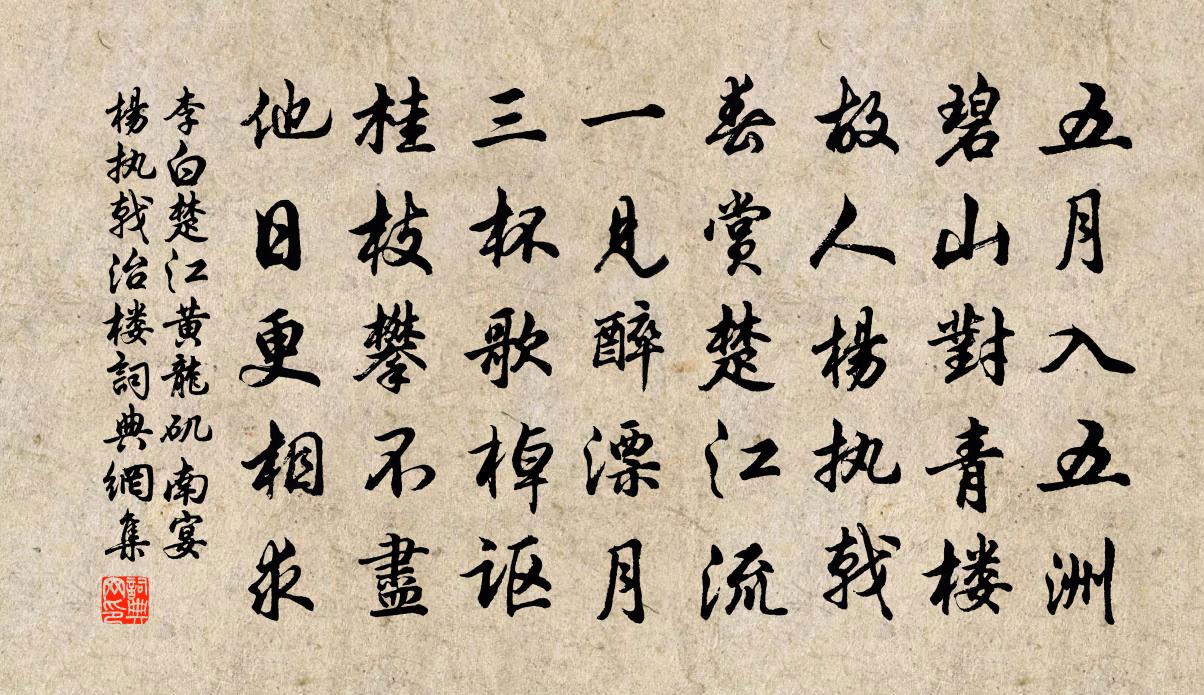 五月入五洲
碧山對青楼
故人楊执戟
春赏楚江流
一见醉漂月
三杯歌棹讴
桂枝攀不盡
他日更相求
李白楚江黄龍矶南宴
楊执戟治楼詞典網集
詞典
网印